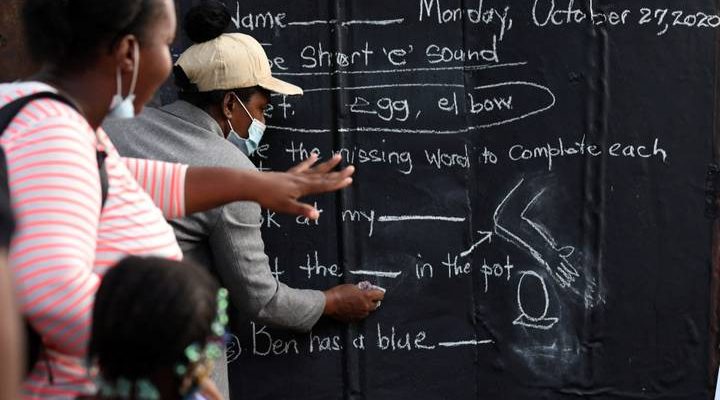 Name_____ Monday, October 27,2020
Short 'e' Sound
Egg, elbow
the missing word to complete each
at my_____
the ____ in the pot
Ben has a blue ____